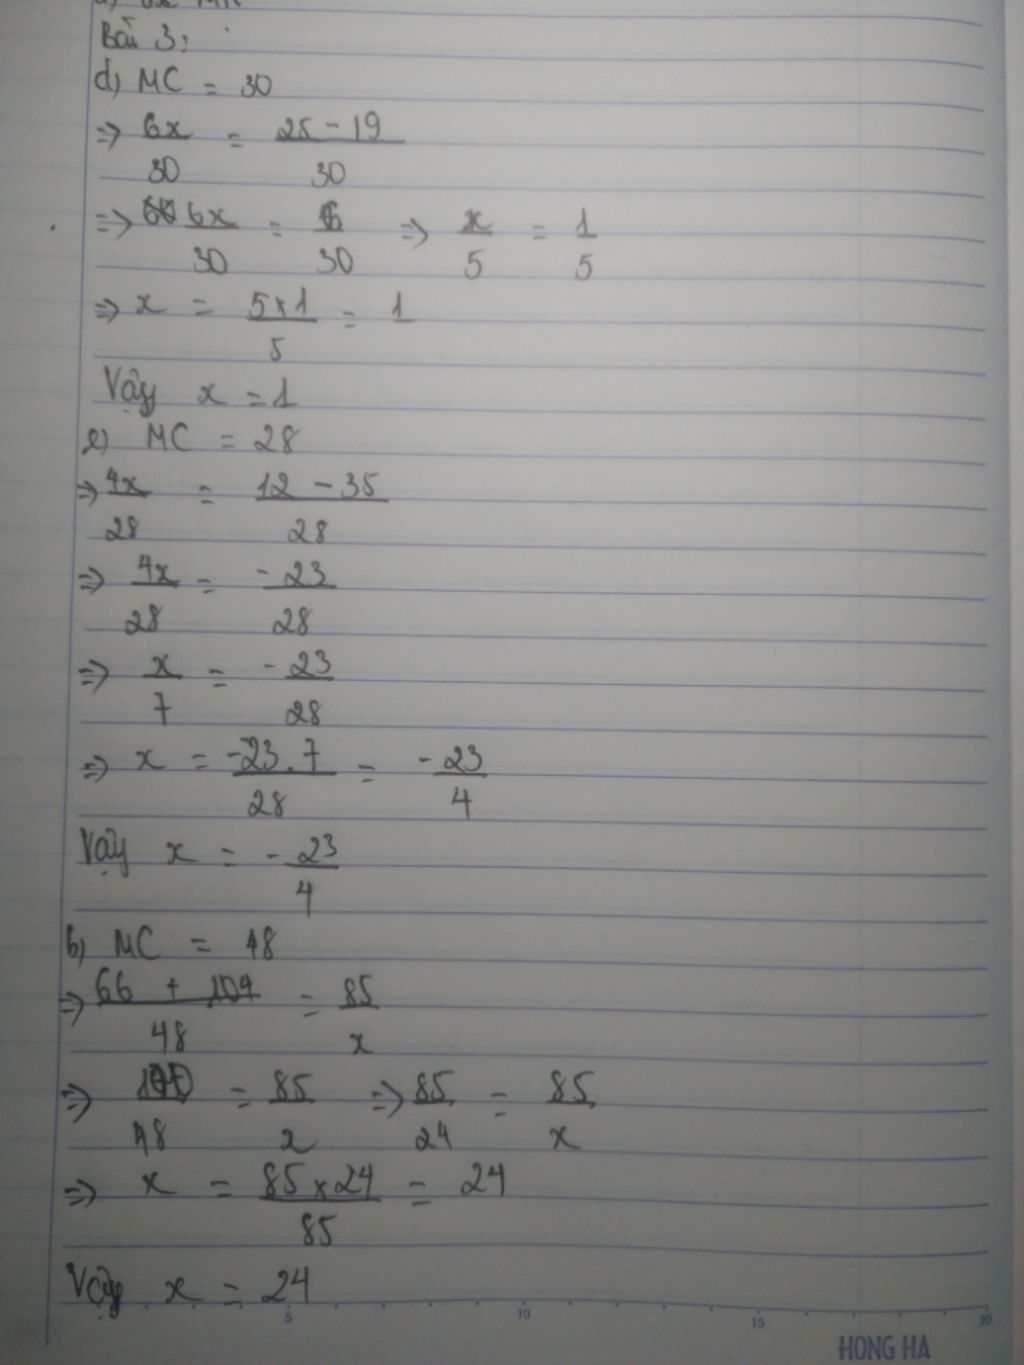 Bài 3:
d) MC = 30
=> 6x/30 = 25 - 19/30
=> 6x/30 = 6/30 => x/5 = 1/5
=> x = 5×1/5 = 1
Vậy x = 1
e) MC = 28
=> 4x/28 = 12 - 35/28
=> 4x/28 = -23/28
=> x/7 = -23/28
=> x = -23.7/28 = -23/4
Vậy x = -23/4
b) MC = 48
=> 66 + 104/48 = 85/x
=> 170/48 = 85/x => 85/24 = 85/x
=> x = 85×24/85 = 24
Vậy x = 24
5 10 15 20
HONG HA